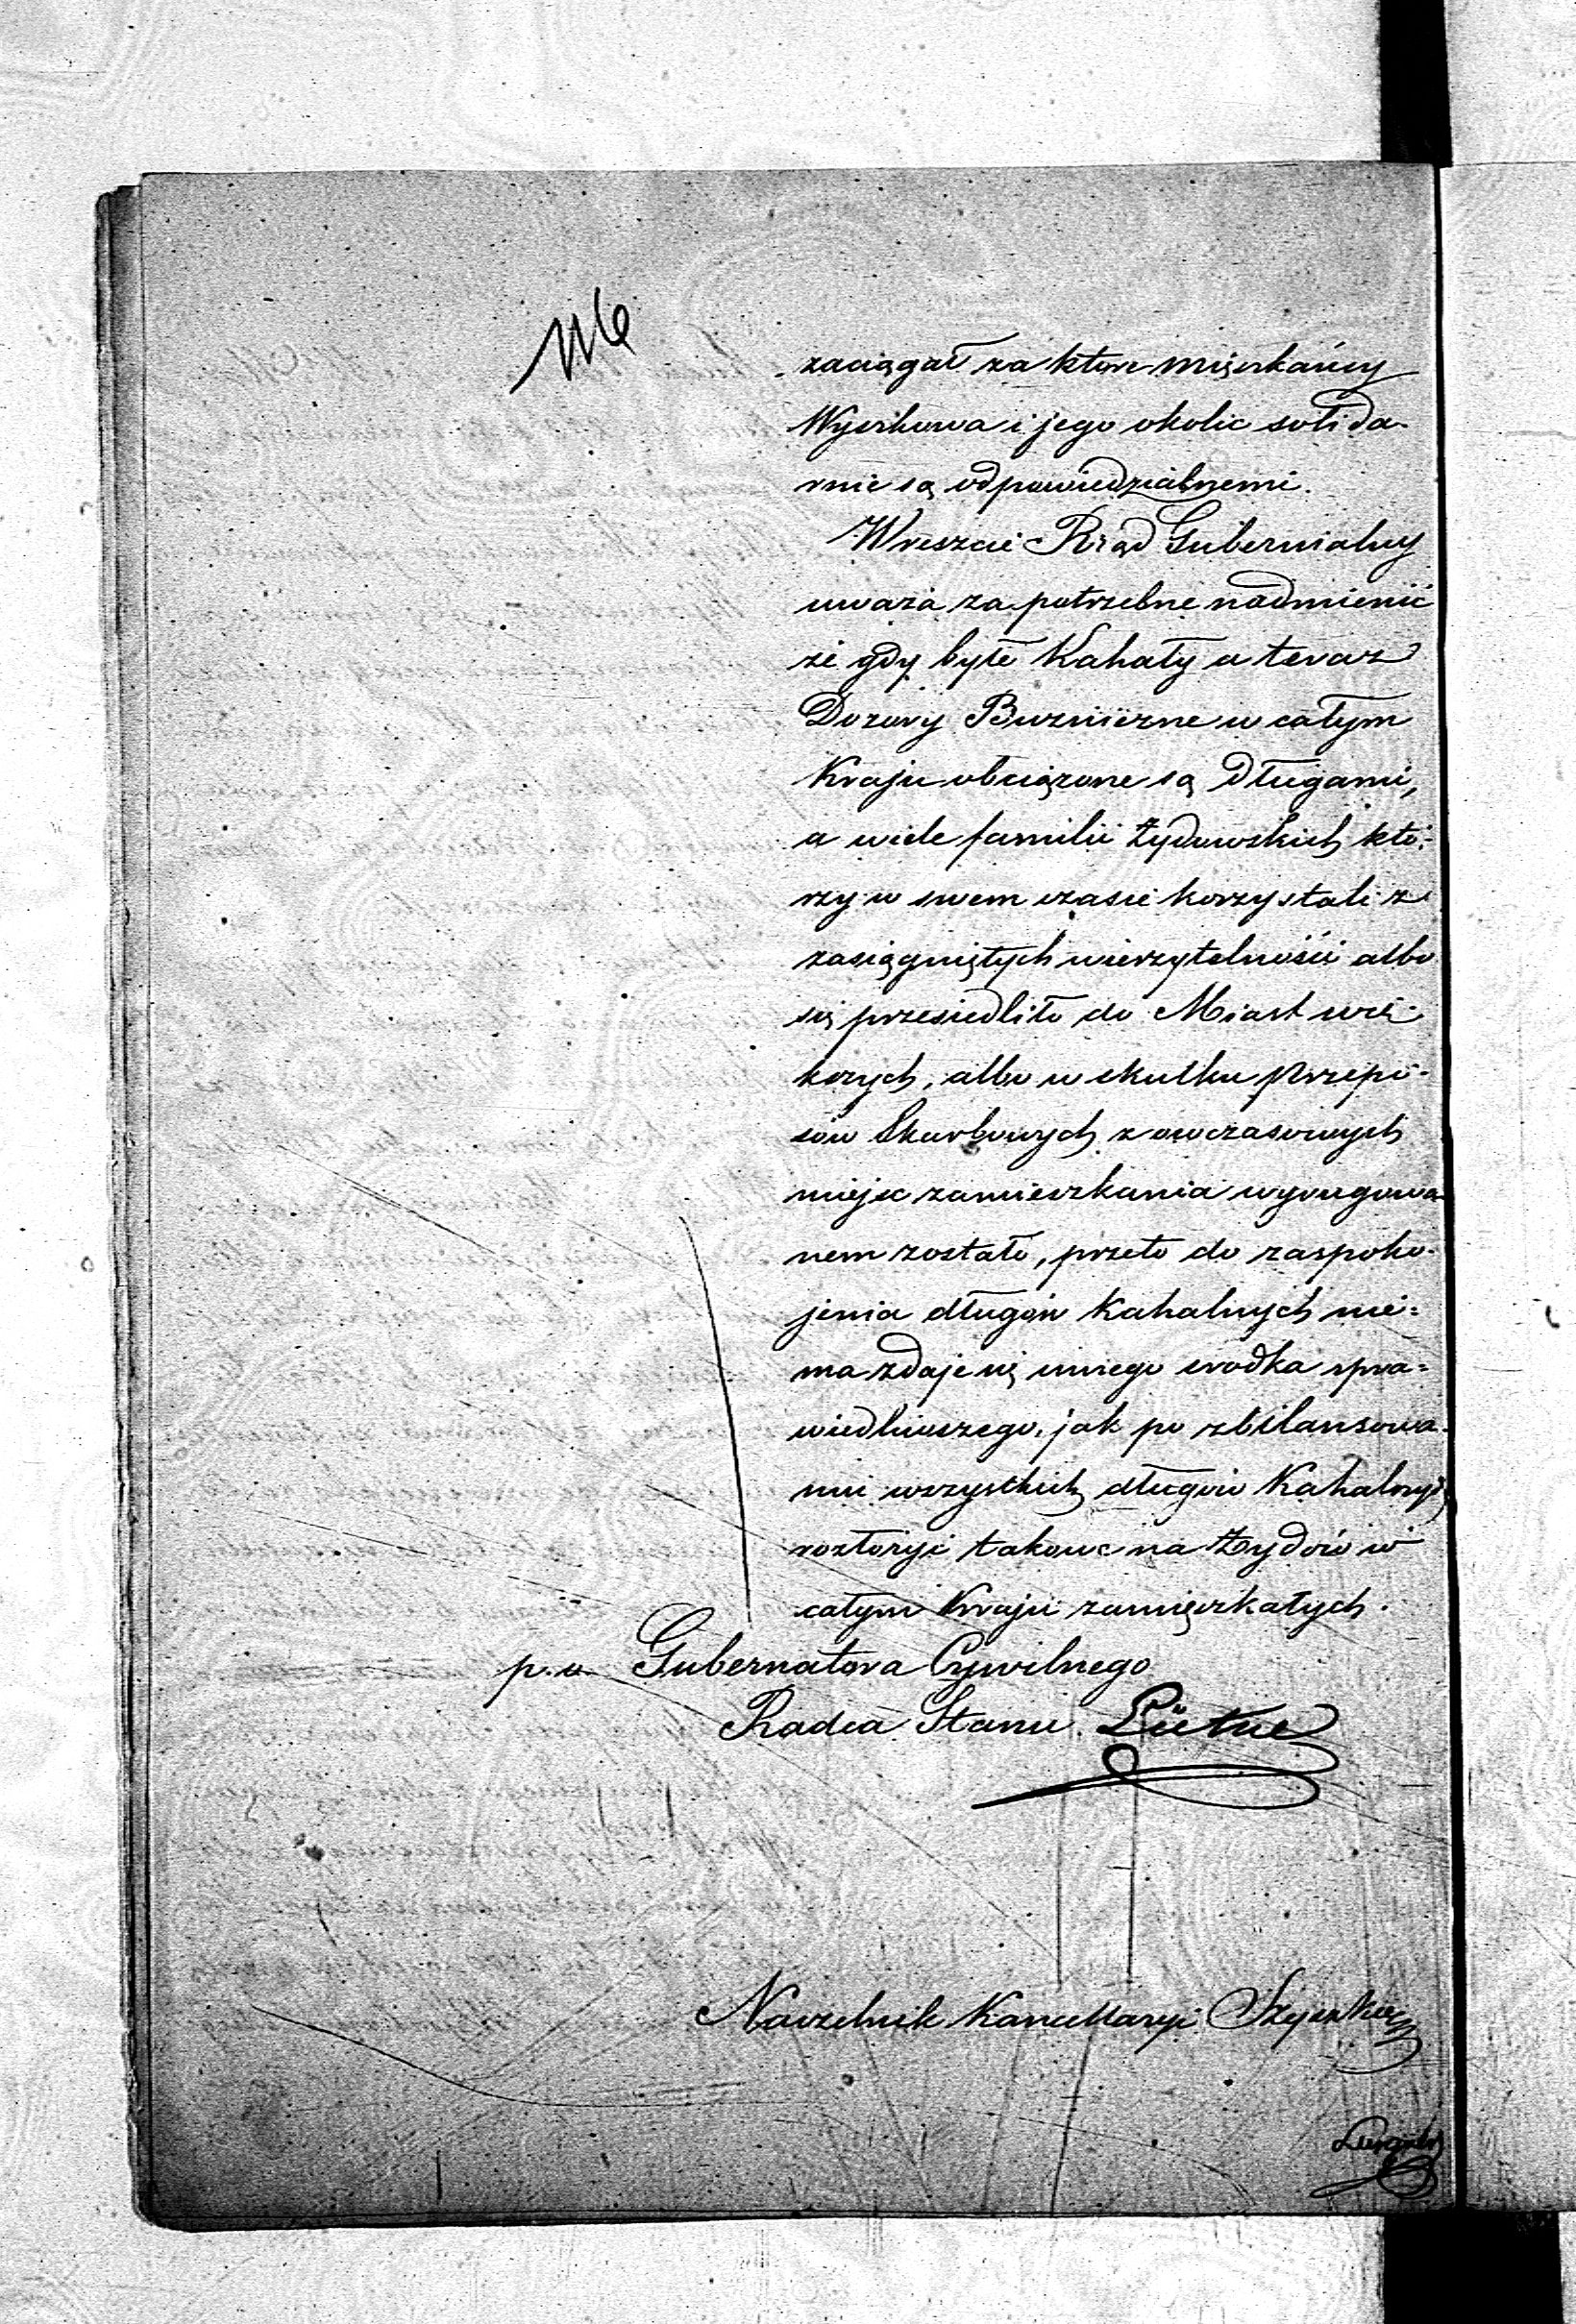 116
zaciągał za które mięszkańcy
Wyszkowa i jego okolic solida-
rnie są odpowiedzialnemi.
Wreszcie Rząd Gubernialny
uważa za potrzebne nadmienić
że gdy byłe Kahały a teraz
Dozory Bużnicze w całym
Kraju obciążone są długami,
a wiele familii Żydowskich któ-
rzy w swem czasie korzystali z
zasiągniętych wierzytelności albo
się przesiedliło do Miast wię-
kszych, albo w skutku przepi-
sów Skarbowych z owczasowych
miejsc zamieszkania wyrugowa-
nem zostało, przeto do zaspoko-
jenia długów Kahalnych nie=
ma zdaje się innego srodka spra=
wiedliwszego, jak po zbilansowa-
niu wszystkich długów Kahalnych
rozłożyć takowe na Żydów w
całym Kraju zamięszkałych.
p.o. Gubernatora Cywilnego
Radca Stanu
Naczelnik Kancellaryi